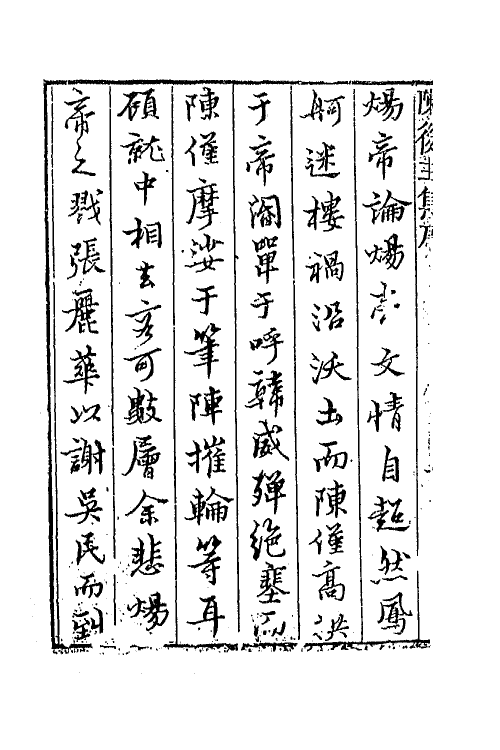 陳後主集序
煬帝論煬帝文情自超然鳳
舸迷樓禍沿沃土而陳僅高洪
于帝閽單于呼韓威殫絶塞而
陳僅摩娑于筆陣摧輪等耳
碩就中相去亦可數層余悲煬
帝之戮張麗華以謝吳民而到